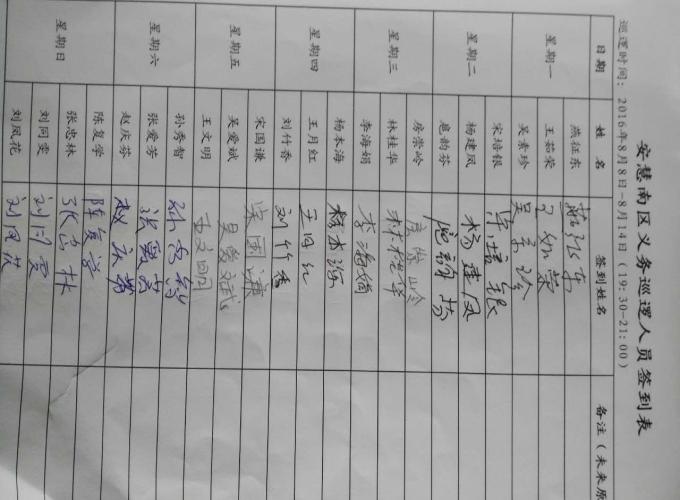 安慧南区义务巡逻人员签到表
巡逻时间：2016年8月8日-8月14日（19:30-21:00）
日期 姓名 签到姓名 备注（未来原
星期一 燕征东 燕征东
王茹荣 王茹荣
吴素珍 吴素珍
星期二 宋培银 宋培银
杨建凤 杨建凤
扈韵芬 扈韵芬
星期三 房崇岭 房崇岭
林桂华 林桂华
李海娟 李海娟
星期四 杨本海 杨本海
王月红 王月红
刘竹香 刘竹香
星期五 宋国谦 宋国谦
吴爱斌 吴爱斌
王文明 王文明
星期六 孙秀智 孙秀智
张爱芳 张爱芳
赵庆芬 赵庆芬
星期日 陈复学 陈复学
张忠林 张忠林
刘同雯 刘同雯
刘凤花 刘凤花